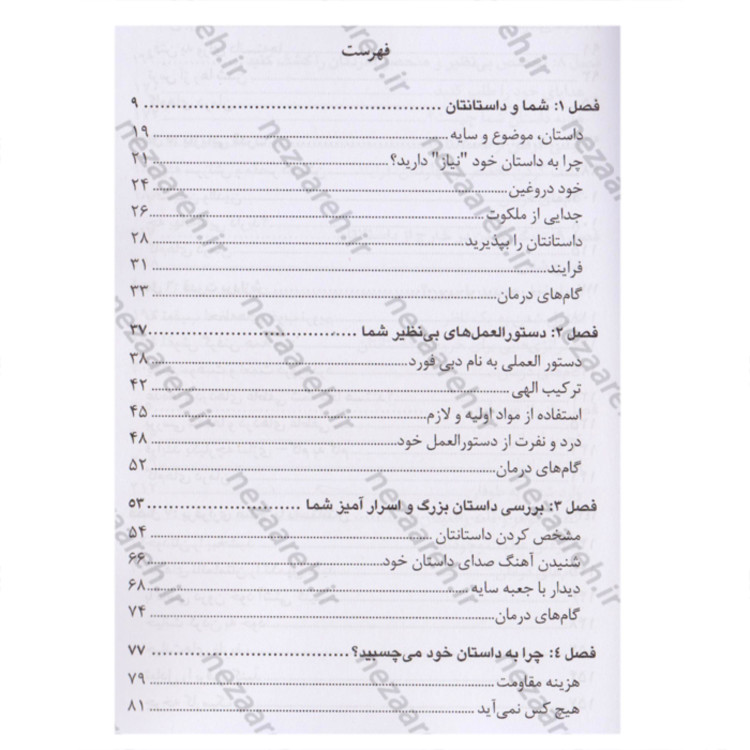 فهرست
فصل ۱: شما و داستانتان ................................................ ۹
داستان، موضوع و سایه ................................................ ۱۹
چرا به داستان خود "نیاز" دارید؟ ................................................ ۲۱
خود دروغین ................................................ ۲۴
جدایی از ملکوت ................................................ ۲۶
داستانتان را بپذیرید ................................................ ۲۸
فرایند ................................................ ۳۱
گام‌های درمان ................................................ ۳۳
فصل ۲: دستورالعمل‌های بی‌نظیر شما ................................................ ۳۷
دستور العملی به نام دبی فورد ................................................ ۳۸
ترکیب الهی ................................................ ۴۲
استفاده از مواد اولیه و لازم ................................................ ۴۵
درد و نفرت از دستورالعمل خود ................................................ ۴۸
گام‌های درمان ................................................ ۵۲
فصل ۳: بررسی داستان بزرگ و اسرار آمیز شما ................................................ ۵۳
مشخص کردن داستانتان ................................................ ۵۴
شنیدن آهنگ صدای داستان خود ................................................ ۶۶
دیدار با جعبه سایه ................................................ ۶۸
گام‌های درمان ................................................ ۷۴
فصل ٤: چرا به داستان خود می‌چسبید؟ ................................................ ۷۷
هزینه مقاومت ................................................ ۷۹
هیچ کس نمی‌آید ................................................ ۸۱
nezaareh.ir